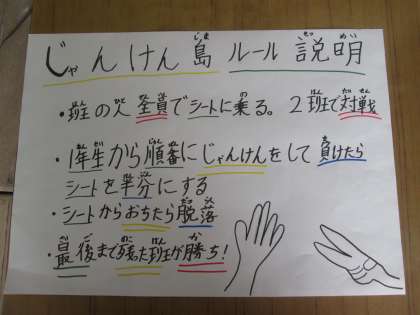 じゃんけん島 ルール 説明
・班の人 全員でシートに乗る。 2班で対戦
・1年生から順番にじゃんけんをして 負けたら
シートを半分にする
・シートからおちたら脱落
・最後まで残った班が勝ち！